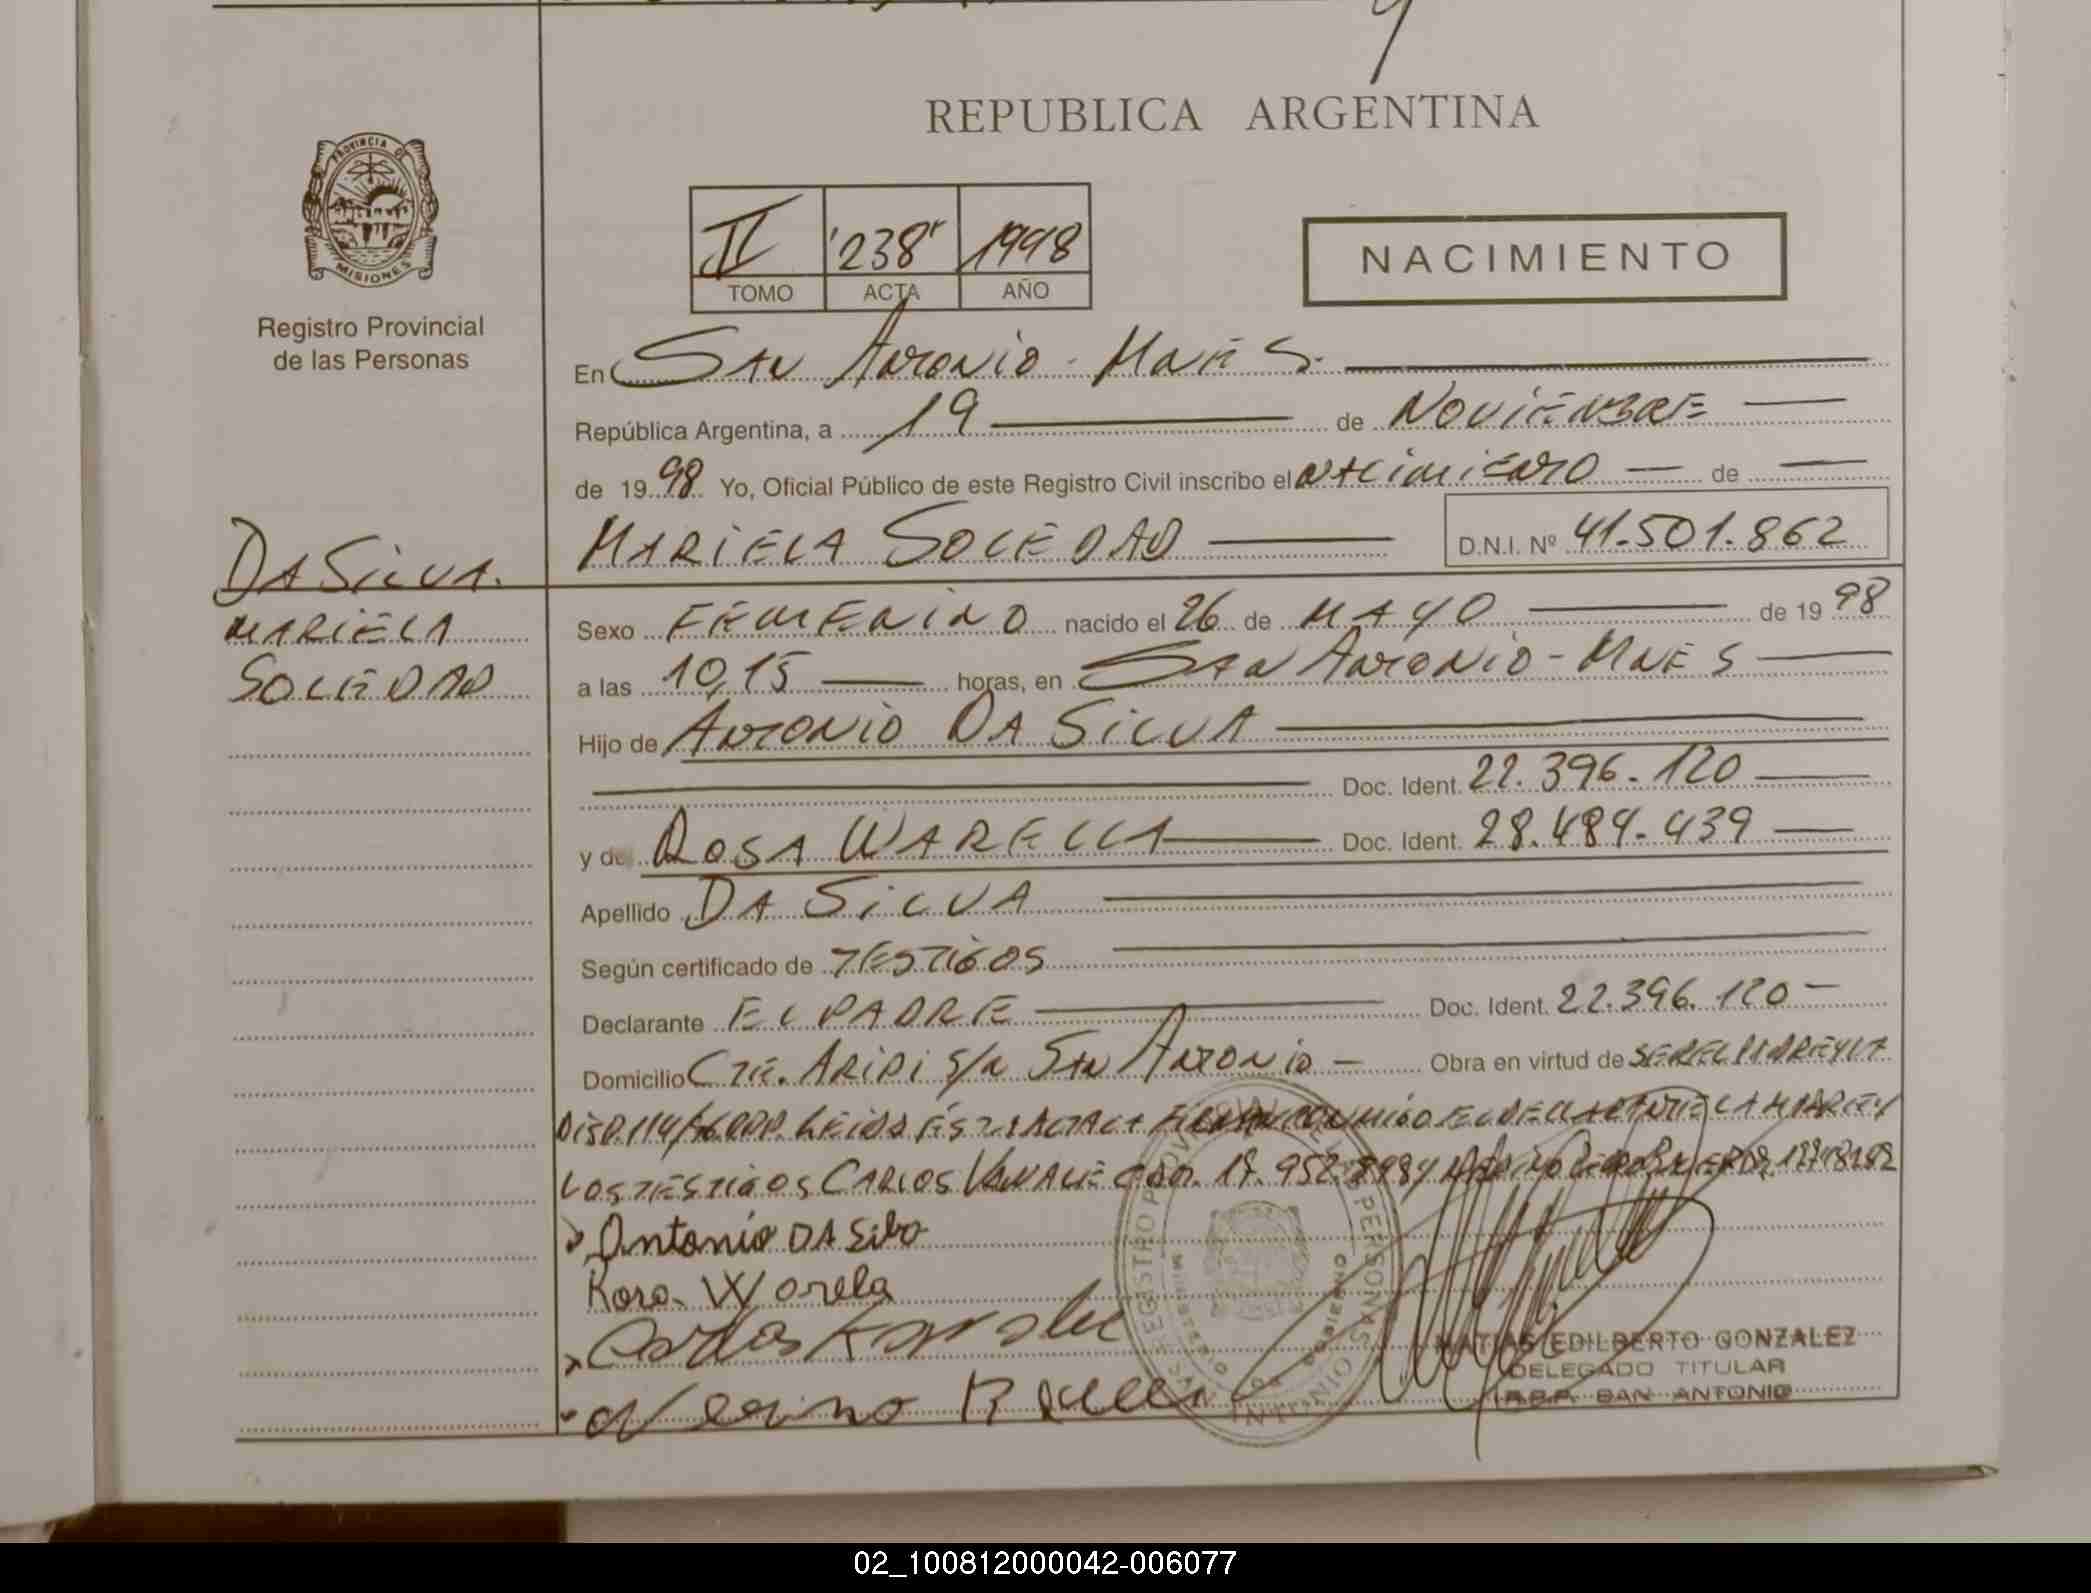 REPUBLICA ARGENTINA
PROVINCIA DE
MISIONES
Registro Provincial
de las Personas
II '238' 1998
TOMO ACTA AÑO
NACIMIENTO
En SAN ANTONIO - MNES.
República Argentina, a 19 de NOVIEMBRE
de 1998 Yo, Oficial Público de este Registro Civil inscribo el NACIMIENTO de
MARIELA SOLEDAD D.N.I. Nº 41.501.862
DA SILVA.
MARIELA
SOLEDAD
Sexo FEMENINO nacido el 26 de MAYO de 1998
a las 10,15 horas, en SAN ANTONIO - MNES
Hijo de ANTONIO DA SILVA
Doc. Ident. 22.396.120
y de ROSA WARELLA Doc. Ident. 28.484.439
Apellido DA SILVA
Según certificado de TESTIGOS
Declarante EL PADRE Doc. Ident. 22.396.120
Domicilio CTE. ARIPI S/N SAN ANTONIO Obra en virtud de SER EL PADRE Y LA
DISP. 114/ LEIDA ESTA ACTA LA FIRMAN CONMIGO EL DECLARANTE LA MADRE Y
LOS TESTIGOS CARLOS
Antonio DA Silva
Rosa Warela
Carlos
MATIAS EDILBERTO GONZALEZ
DELEGADO TITULAR
R.P.P. SAN ANTONIO
02_100812000042-006077